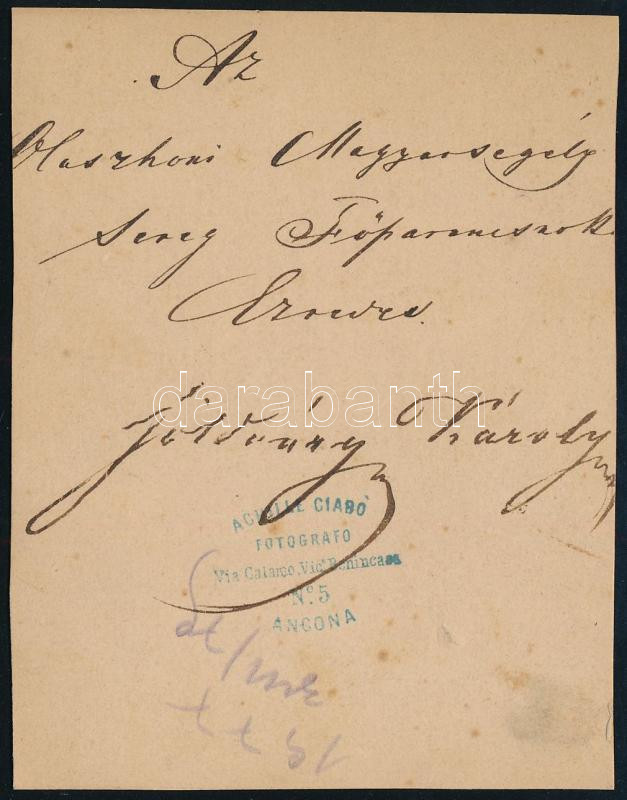 Az
Olaszhoni Magyarsegély
sereg Főparancsnok
Ezredes
Földváry Károly
darabanth
ACHILLE CIABÒ
FOTOGRAFO
Via Calamo, Vic° Bonincasa
N°. 5
ANCONA